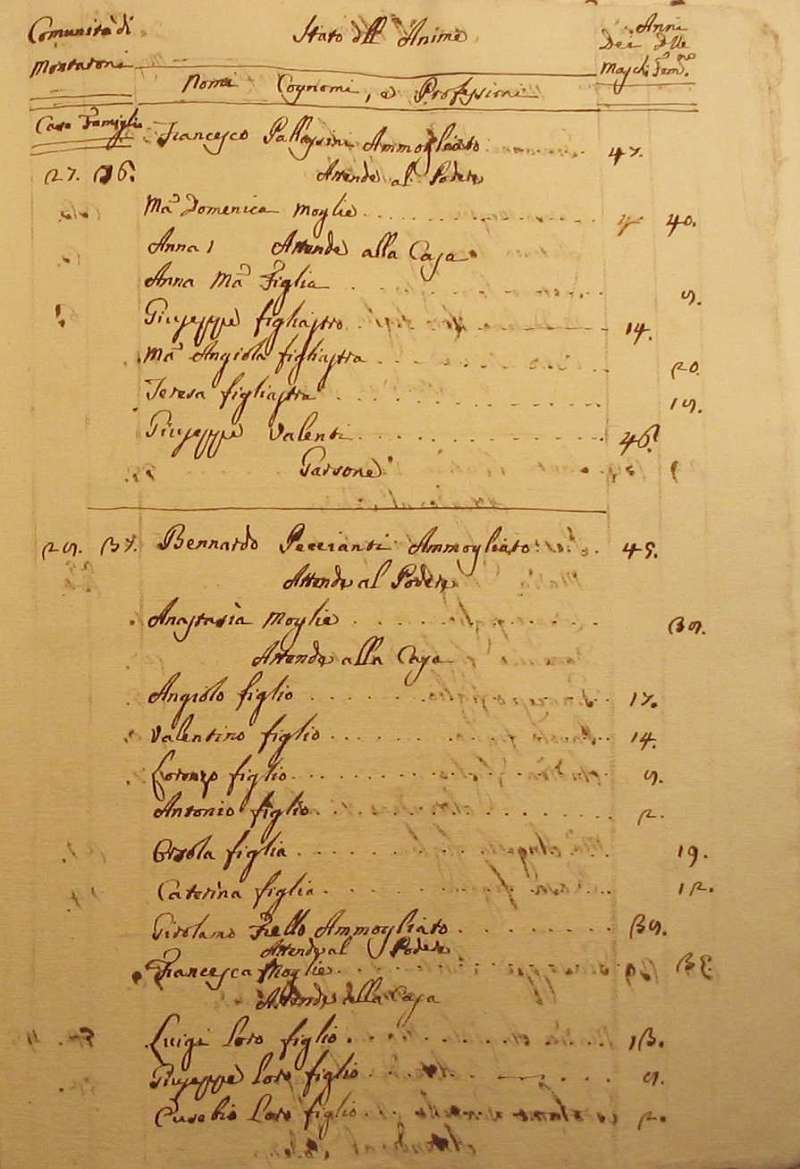 Comunità di
Montatoni
Stato dell' Anime
Anni
Dei Delle
Maschi Fem.ne
Nomi Cognomi, e Professioni
Case Famiglie
27. 36. Francesco Ammogliato 47.
Attende al Podere
Ma. Domenica Moglie 40.
Anna 1 Attende alla Casa
Anna Ma. Figlia 9.
Giuseppe figliastro 14.
Ma. Angiola figliastra 20.
Teresa figliastra 19.
Giuseppe Valenti 46.
Garzone
29. 37. Bernardo Peccianti Ammogliato 45.
Attende al Podere
Anastasia Moglie 39.
Attende alla Casa
Angiolo figlio 17.
Valentino figlio 14.
Lorenzo figlio 9.
Antonio figlio 2.
Orsola figlia 19.
Caterina figlia 12.
Girolamo Fr'ello Ammogliato 39.
Attende al Podere
Francesca Moglie
Attende alla Casa
Luigi loro figlio 13.
Giuseppe loro figlio 9.
Eusebio loro figlio 2.